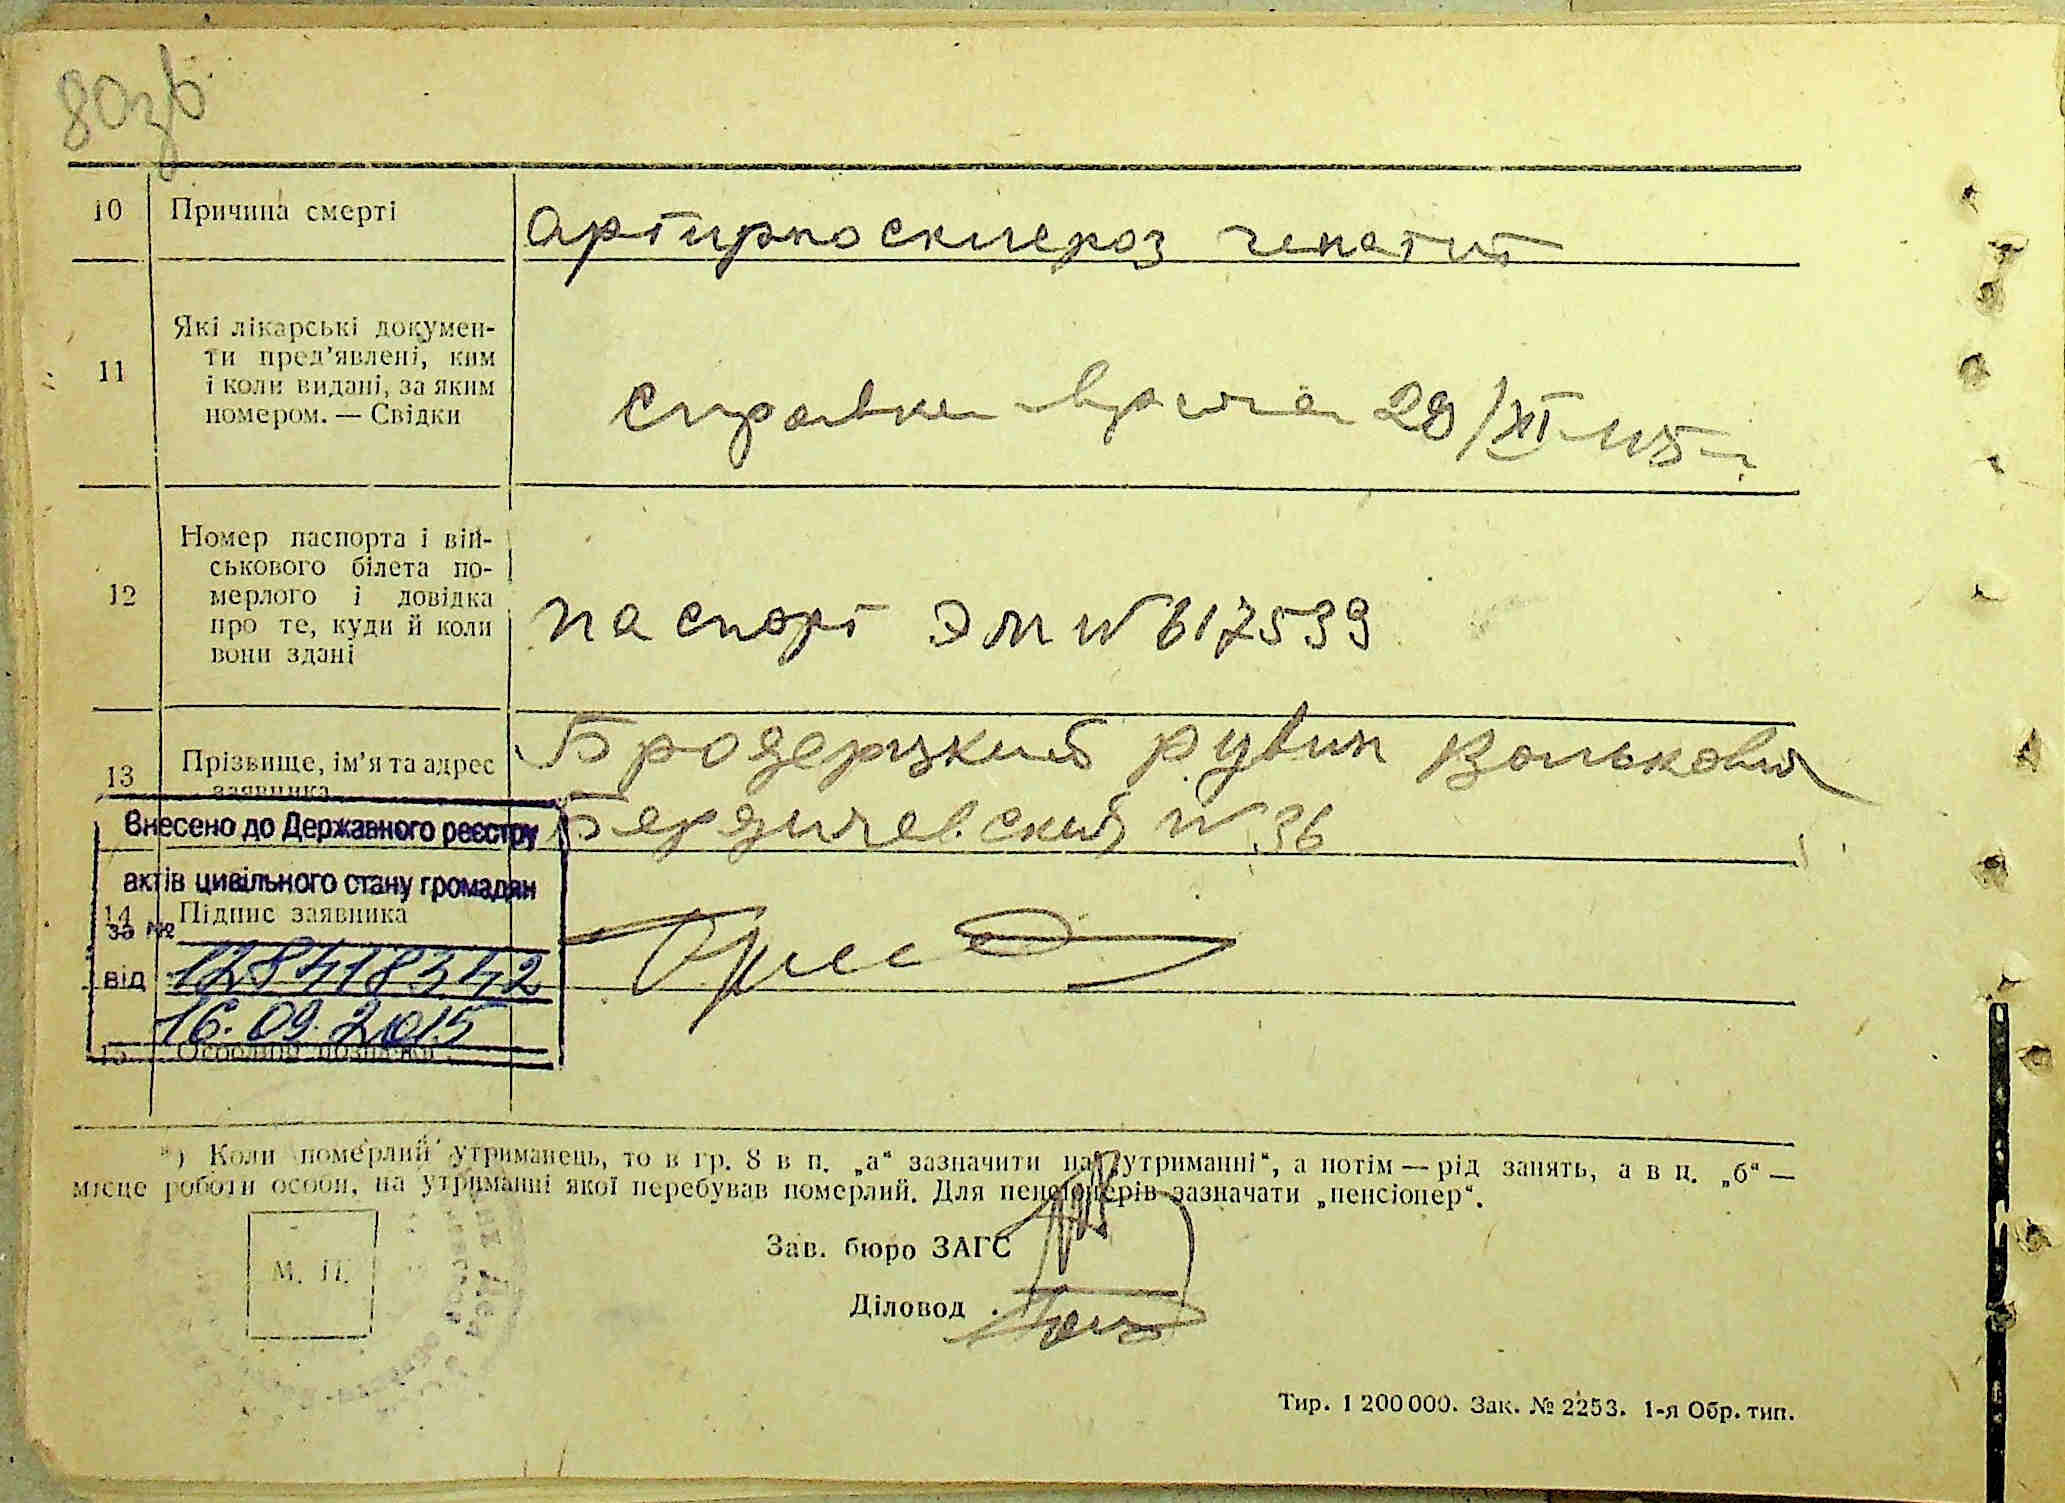 80зв
10 Причина смерті
артирио склероз гепатит
11 Які лікарські докумен-
ти пред’явлені, ким
і коли видані, за яким
номером. — Свідки
справка врача 29/XI
12 Номер паспорта і вій-
ськового білета по-
мерлого і довідка
про те, куди й коли
вони здані
паспорт ЭМ № 617539
13 Прізвище, ім’я та адрес
заявника
Бродецкий Рувин Волькович
Бердичевский № 36
Внесено до Державного реєстру
актів цивільного стану громадян
за №
128418342
від
16.09.2015
14 Підпис заявника
15 Особливі позначки
*) Коли померлий утриманець, то в гр. 8 в п. „а“ зазначити на „утриманні“, а потім — рід занять, а в п. „б“ —
місце роботи особи, на утриманні якої перебував померлий. Для пенсіонерів зазначати „пенсіонер“.
М. П.
Зав. бюро ЗАГС
Діловод
Тир. 1 200 000. Зак. № 2253. 1-я Обр. тип.